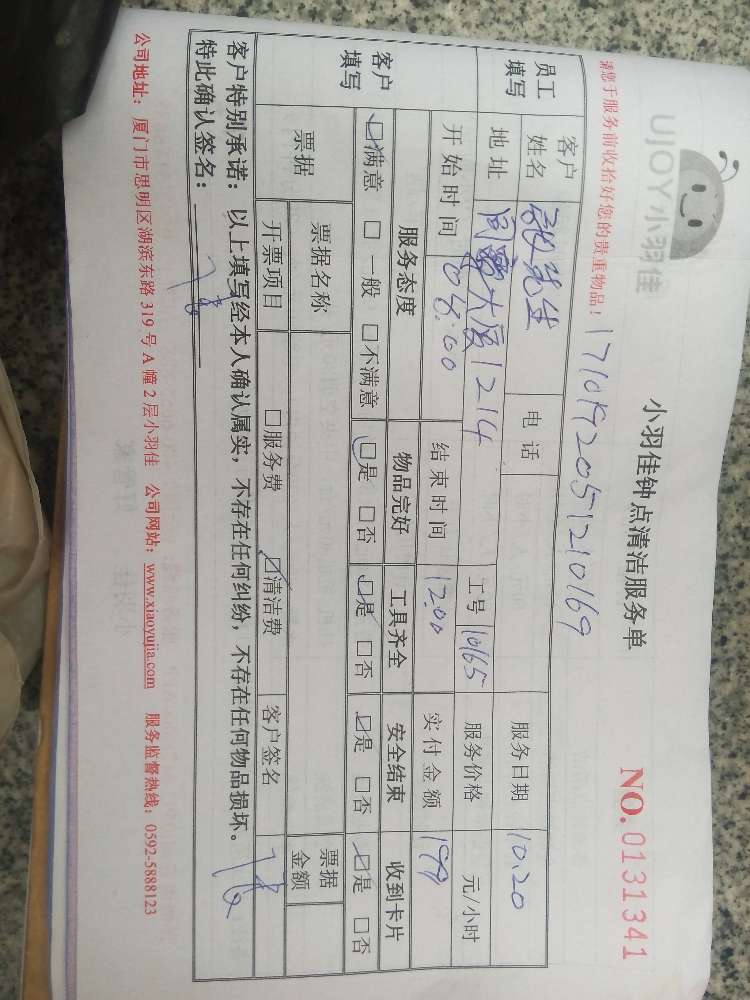 UJOY小羽佳
小羽佳钟点清洁服务单
NO.0131341
请您于服务前收拾好您的贵重物品！
1710192051210169
员工填写 客户姓名 先生 电话 服务日期 10.20
地址 大厦1214 工号 10165 服务价格 元/小时
开始时间 08:00 结束时间 12:00 实付金额 199
客户填写 服务态度 物品完好 工具齐全 安全结束 收到卡片
☑满意 □一般 □不满意 ☑是 □否 ☑是 □否 ☑是 □否 ☑是 □否
票据 票据名称 票据金额
开票项目 □服务费 ☑清洁费 客户签名
客户特别承诺：以上填写经本人确认属实，不存在任何纠纷，不存在任何物品损坏。
特此确认签名：
公司地址：厦门市思明区湖滨东路319号A幢2层小羽佳 公司网站：www.xiaoyujia.com 服务监督热线：0592-5888123